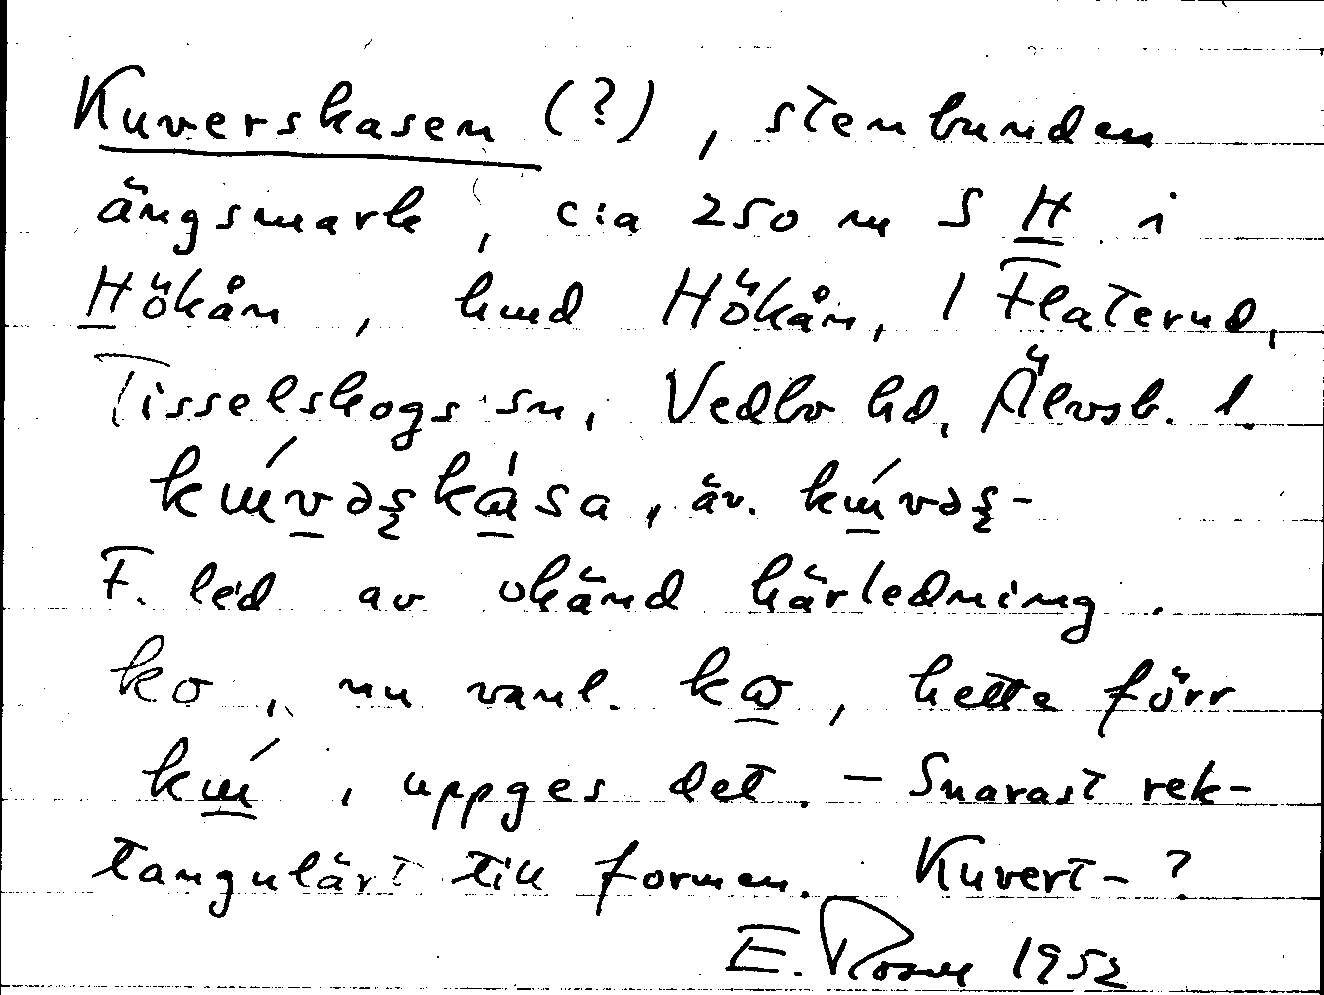 Kuverskasen (?), stenbunden
ängsmark, c:a 250 m S H i
Hökån, hmd Hökån, 1 Flaterud,
Tisselskogs sn, Vedbo hd, Älvsb. l.
F. led av okänd härledning.
ko, nu vanl. , hette förr
, uppges det. – Snarast rek-
tangulärt till formen. Kuvert- ?
E. Rosm 1952